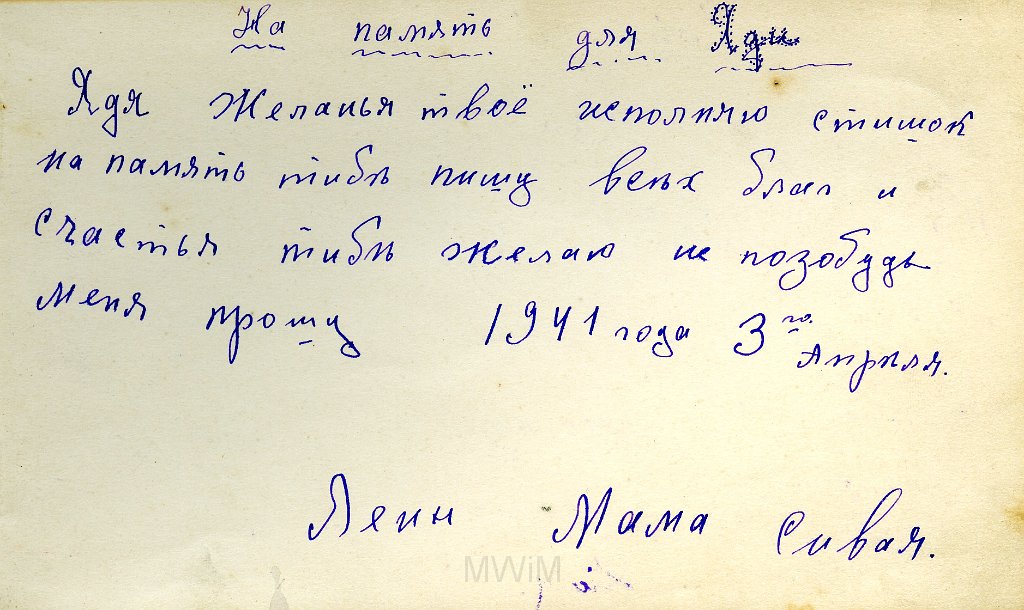 На память для Яди
Ядя Желанья твоё исполняю стишок
на память тибѣ пишу всѣх благ и
счастья тибѣ желаю не позобудь
меня прошу 1941 года 3го. Апрѣля.
Мама Сивая.
MWiM